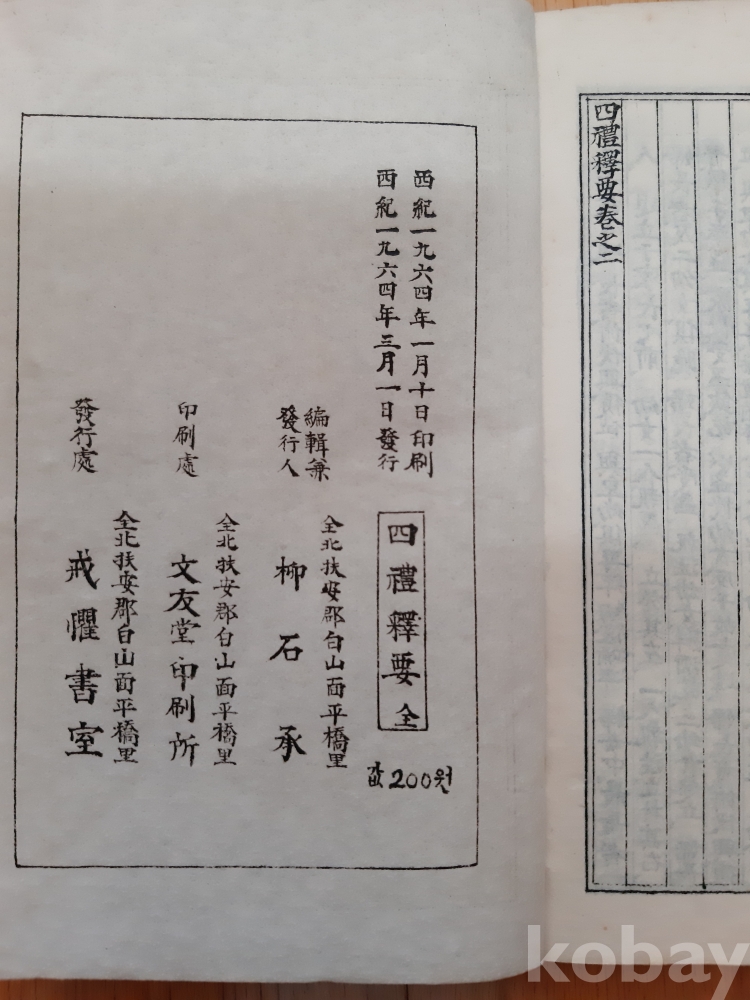 四禮釋要卷之二
西紀一九六四年一月十日印刷
西紀一九六四年三月一日發行
四禮釋要 全
값 200원
編輯兼
發行人
全北扶安郡白山面平橋里
柳石承
印刷處
全北扶安郡白山面平橋里
文友堂印刷所
發行處
全北扶安郡白山面平橋里
戒懼書室
kobay